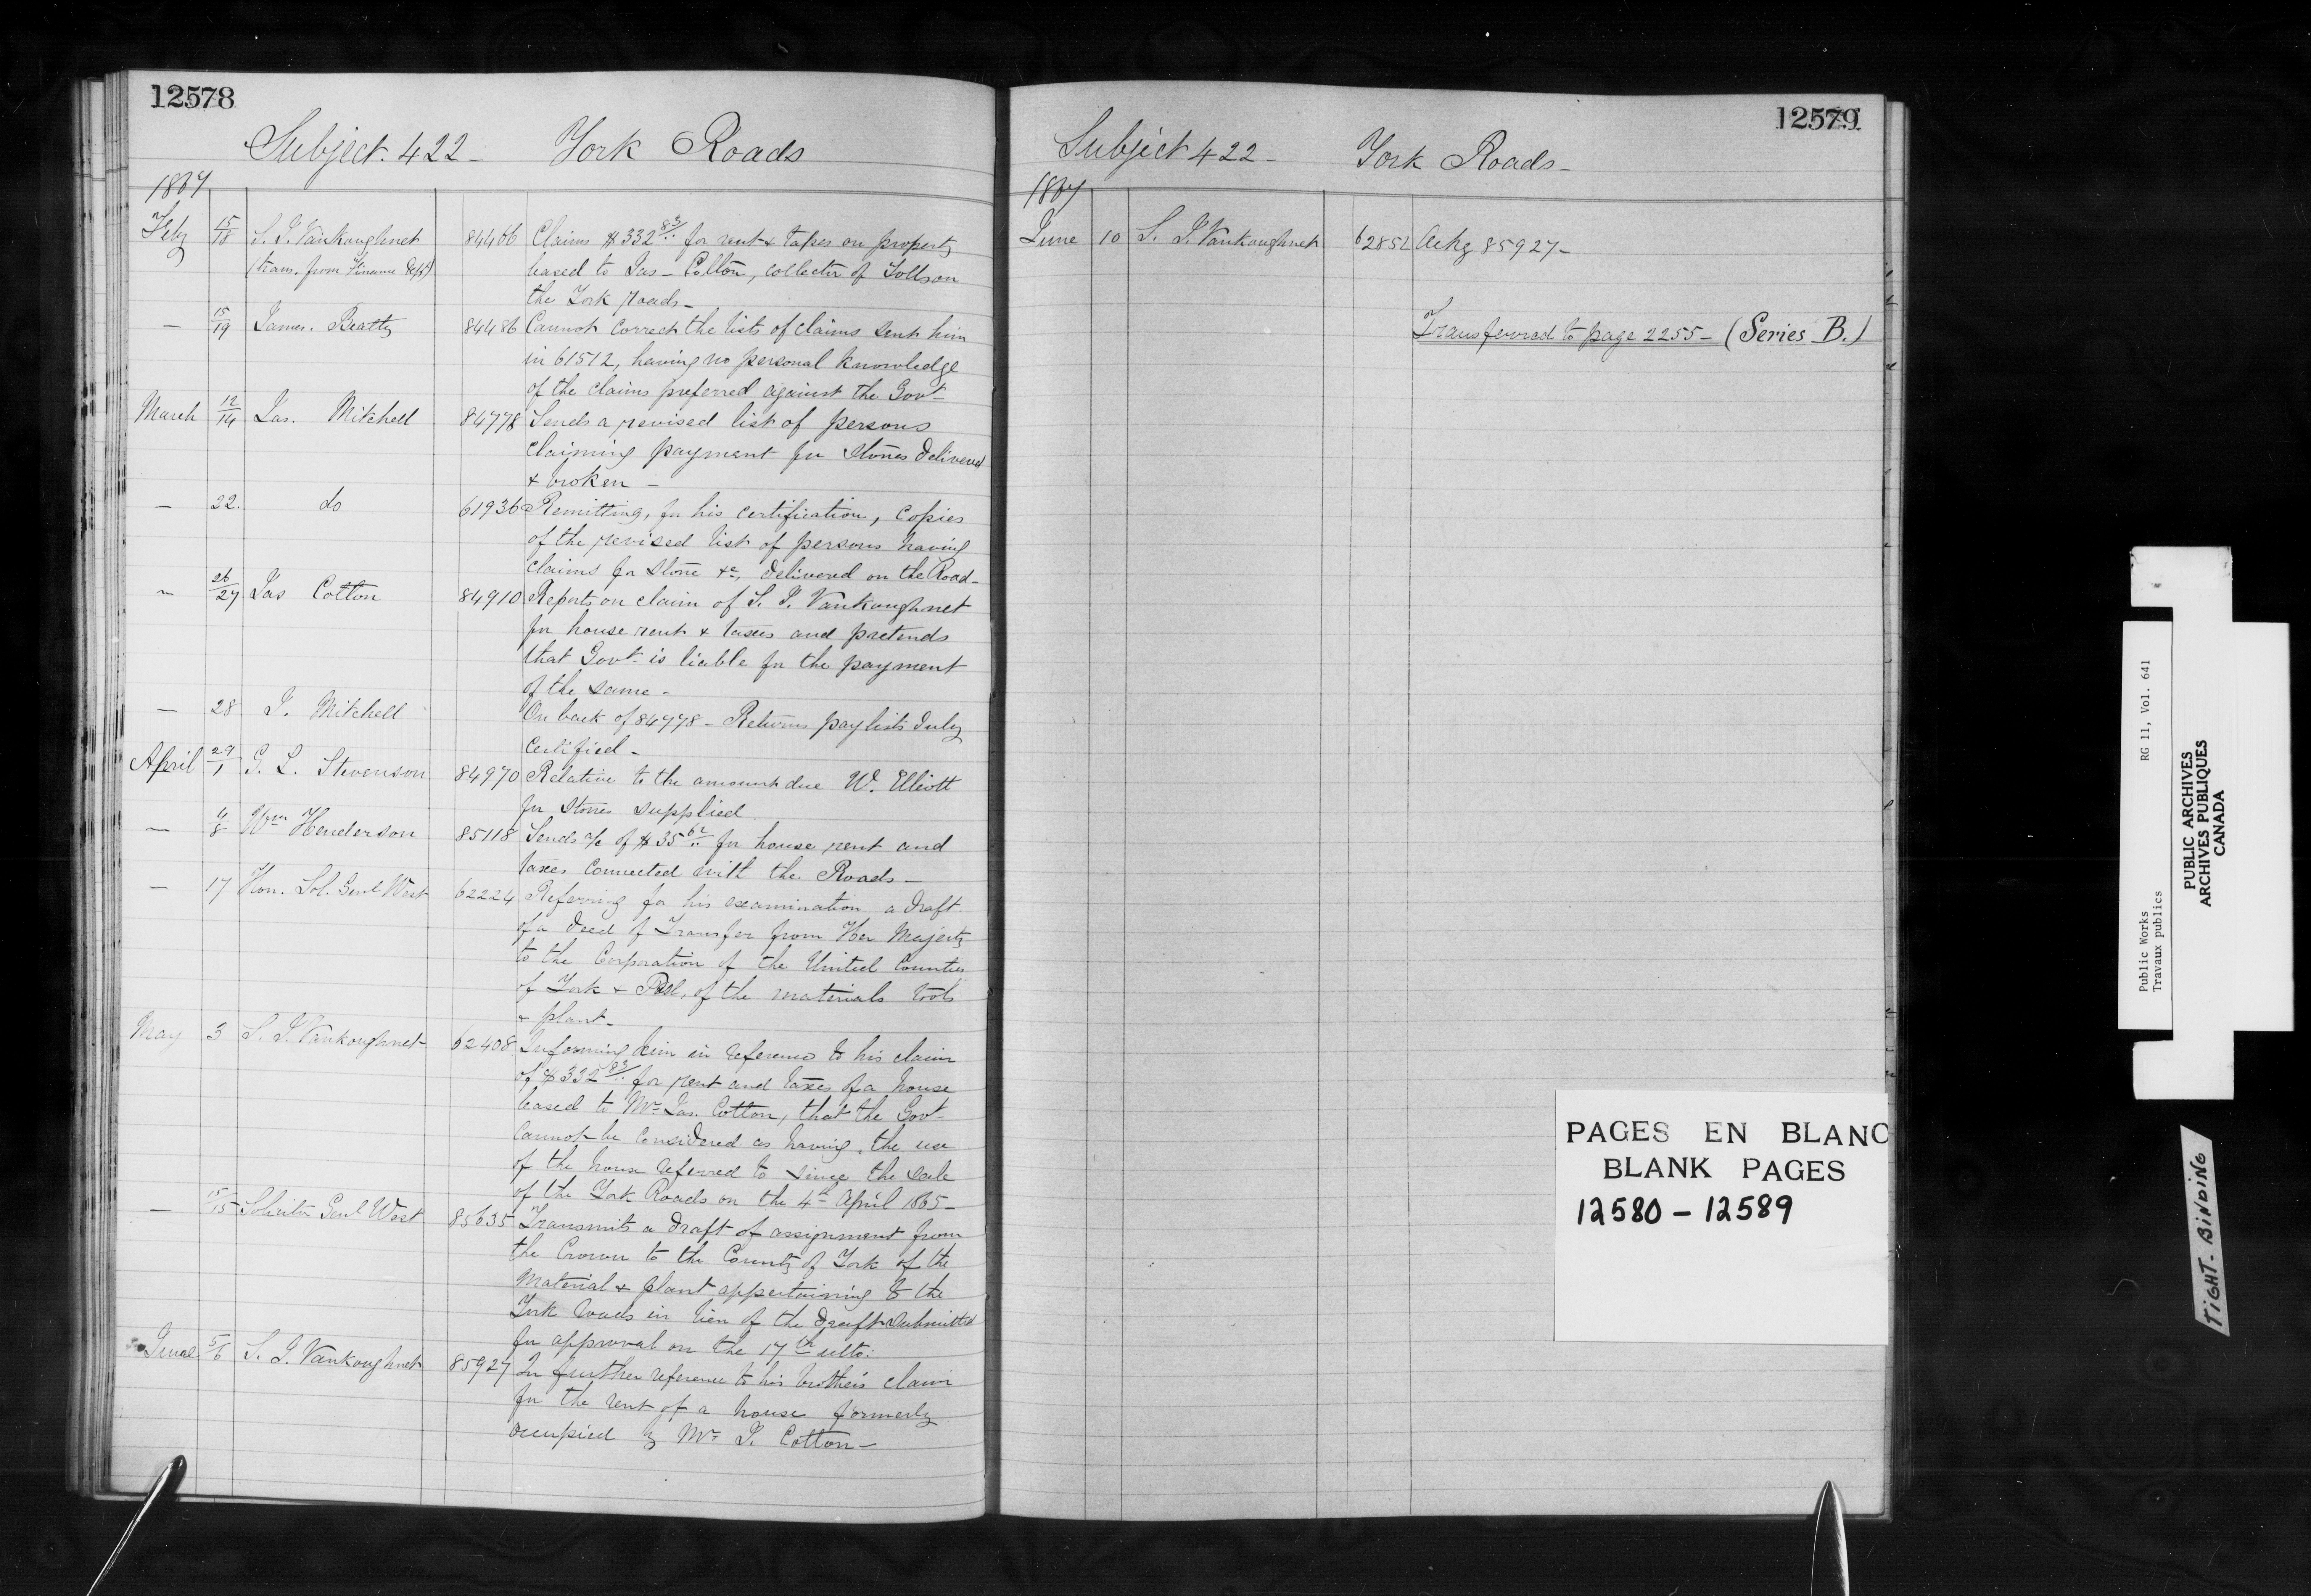 12578
Subject. 422 - York Roads
1867
Feby 15/18 S. J. Vankoughnet 84406 Claims $332 83/.. for rent & taxes on property
(trans. from Finance Dept) leased to Jas - Cotton, collector of Tolls on
the York roads -
— 15/19 James. Beatty 84486 Cannot correct the lists of claims sent him
in 61512, having no personal knowledge
of the claims preferred against the Govt -
March 12/14 Jas. Mitchell 84778 Sends a revised list of persons
claiming payment for stones delivered
& broken -
— 22. do 61936 Remitting, for his certification, copies
of the revised list of persons having
claims for stone &c, delivered on the Road -
— 26/27 Jas Cotton 84910 Reports on claim of S. J. Vankoughnet
for house rent & taxes and pretends
that Govt. is liable for the payment
of the same -
— 28 J. Mitchell On back of 84778 - Returns paylists duly
certified -
April 29/1 G. L. Stevenson 84970 Relative to the amount due W. Elliott
for stones supplied.
— 4/8 Wm Henderson 85118 Sends a/c of $35 62/.. for house rent and
taxes connected with the Roads -
— 17 Hon. Sol. Genl West 62224 Referring for his examination a draft
of a deed of Transfer from Her Majesty
to the Corporation of the United Counties
of York & Peel, of the materials tools
& plant -
May 3 S. J. Vankoughnet 62408 Informing him in reference to his claim
of $332 83/.. for rent and taxes of a house
leased to Mr Jas. Cotton, that the Govt
cannot be considered as having the use
of the house referred to since the sale
of the York Roads on the 4th April 1865 -
— 15/15 Solicitor Genl West 85635 Transmits a draft of assignment from
the Crown to the County of York of the
material & plant appertaining to the
York roads in lieu of the draft submitted
for approval on the 17th ulto:
June 5/6 S. J. Vankoughnet 85927 In further reference to his brother's claim
for the rent of a house formerly
occupied by Mr J. Cotton -
12579
Subject 422 - York Roads -
1867
June 10 S. J. Vankoughnet 62852 Ackg 85927 -
Transferred to page 2255 - (Series B.)
PAGES EN BLANC
BLANK PAGES
12580 - 12589
Public Works RG 11, Vol. 641
Travaux publics
PUBLIC ARCHIVES
ARCHIVES PUBLIQUES
CANADA
TIGHT - BINDING